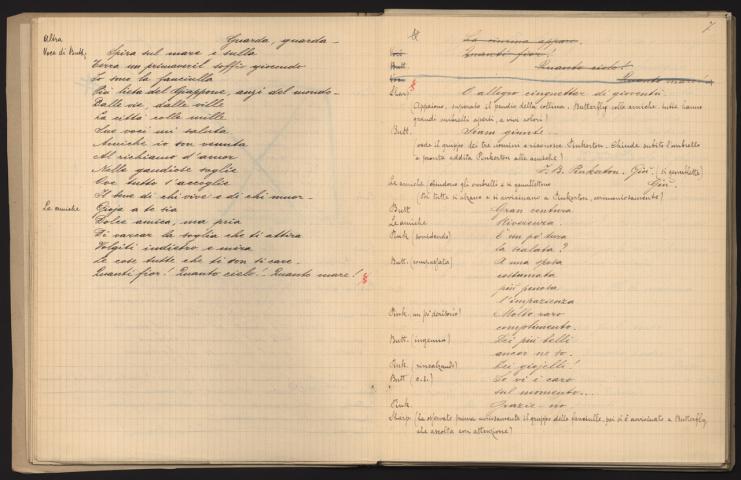 Altra Guarda, guarda –
Voce di Butt. Spira sul mare e sulla
Terra un primaveril soffio giocondo
Io sono la fanciulla
Più lieta del Giappone, anzi del mondo –
Dalle vie, dalle ville
La città colle mille
Sue voci mi saluta
Amiche io son venuta
Al richiamo d'amor
Nelle gaudiose soglie
Ove tutto s'accoglie
Il bene di chi vive e di chi muor –
Le amiche Gioja a te sia
Dolce amica, ma pria
Di varcar la soglia che ti attira
Volgiti indietro e mira
Le cose tutte che ti son sì care –
Quanti fior! Quanto cielo! Quanto mare!
7
La cima appare.
Voci Quanti fior!
Butt. Quanto cielo!
Voci Quanto mare!
Sharp. O allegro cinguettar di gioventù.
Appaiono, superato il pendio della collina, Butterfly colle amiche, tutte hanno
grandi ombrelli aperti, a vivi colori)
Butt. Siam giunte –
vede il gruppo dei tre uomini e riconosce Pinkerton. Chiude subito l'ombrello
e pronta addita Pinkerton alle amiche)
F. B. Pinkerton. Giù. (si genuflette)
Le amiche (chiudono gli ombrelli e si genuflettono Giù.
(Poi tutte si alzano e si avvicinano a Pinkerton, cerimoniosamente)
Butt Gran ventura.
Le amiche Riverenza.
Pink (sorridendo) È un po' dura
la scalata?
Butt. (compassata) A una sposa
costumata
più penosa
l'impazienza
Pink. un po' derisorio) Molto raro
complimento.
Butt. (ingenua) Dei più belli
ancor ne so.
Pink. (rincalzando) Dei gioielli!
Butt (c.s.) Se vi è caro
sul momento...
Pink. Grazie – no.
Sharp. (ha osservato prima curiosamente il gruppo delle fanciulle, poi si è avvicinato a Butterfly,
che ascolta con attenzione)